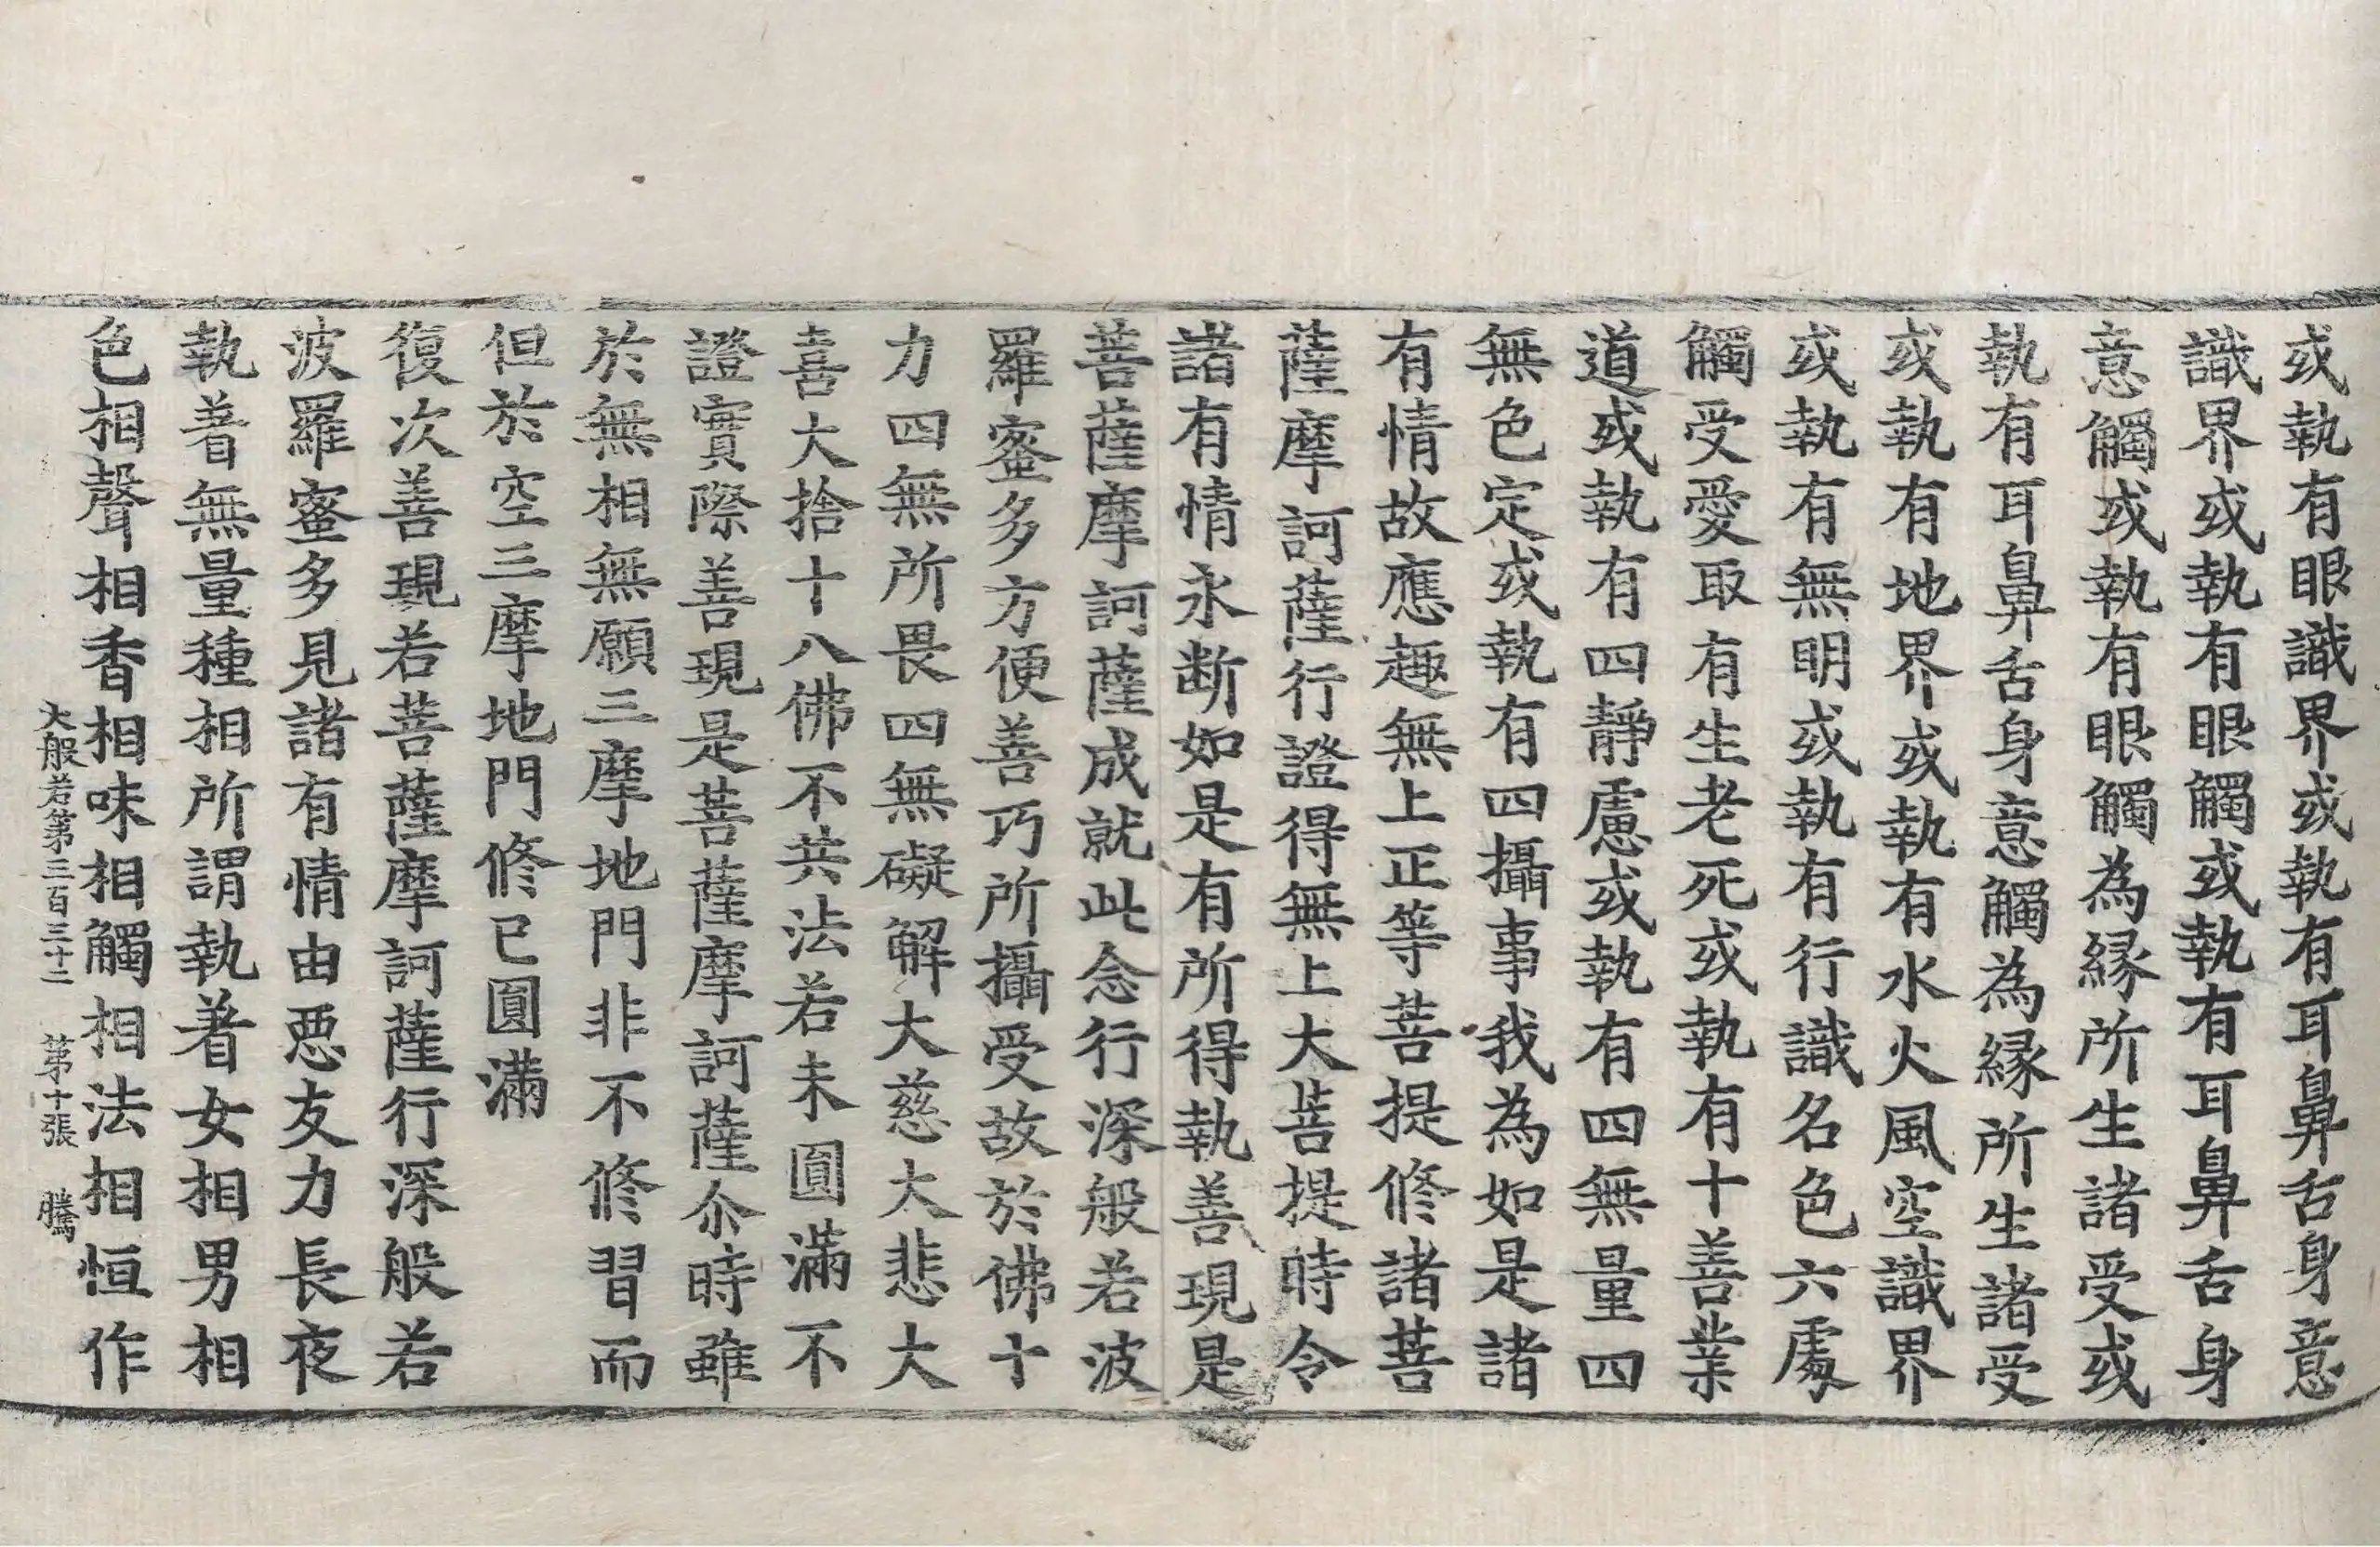 或執有眼識界或執有耳鼻舌身意
識界或執有眼觸或執有耳鼻舌身
意觸或執有眼觸為緣所生諸受或
執有耳鼻舌身意觸為緣所生諸受
或執有地界或執有水火風空識界
或執有無明或執有行識名色六處
觸受愛取有生老死或執有十善業
道或執有四靜慮或執有四無量四
無色定或執有四攝事我為如是諸
有情故應趣無上正等菩提修諸菩
薩摩訶薩行證得無上大菩提時令
諸有情永断如是有所得執善現是
菩薩摩訶薩成就此念行深般若波
羅蜜多方便善巧所攝受故於佛十
力四無所畏四無礙解大慈大悲大
喜大捨十八佛不共法若未圓滿不
證實際善現是菩薩摩訶薩尒時雖
於無相無願三摩地門非不修習而
但於空三摩地門修已圓滿
復次善現若菩薩摩訶薩行深般若
波羅蜜多見諸有情由惡友力長夜
執著無量種相所謂執著女相男相
色相聲相香相味相觸相法相恒作
大般若第三百三十二 第十張 騰